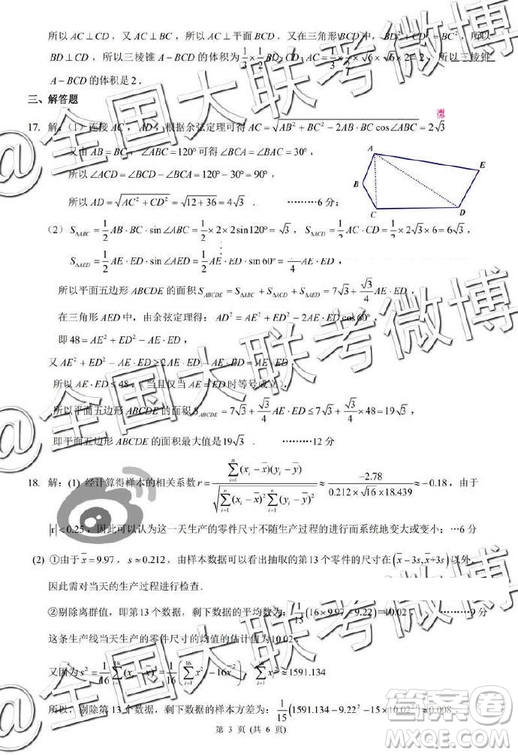 所以 AC⊥CD，又 AC⊥BD，所以 AC⊥平面 BCD，又在三角形 BCD 中，
BD⊥CD，所以三棱锥 A−BCD 的体积为
A−BCD 的体积是 2．
三、解答题
17．解：（1）连接 AC，AD，根据余弦定理可得 AC=√(AB²+BC²−2AB·BC cos∠ABC)=2√3
又由 AB=BC，∠ABC=120°可得∠BCA=∠BAC=30°，
所以∠ACD=∠BCD−∠BCA=90°，
所以 AD=√(AC²+CD²)=√(12+36)=4√3．………6 分；
A
E
C
D
（2）S△ABC=1/2 AB·BC·sin∠ABC=1/2×2×2sin120°=√3，S△ACD=1/2 AC·CD=1/2×2√3×6=6√3，
S△AED=1/2 AE·ED·sin∠AED=1/2 AE·ED·sin60°=√3/4 AE·ED，
所以平面五边形 ABCDE 的面积 S_ABCDE=S△ABC+S△ACD+S△AED=7√3+√3/4 AE·ED，
在三角形 AED 中，由余弦定理得：AD²=AE²+ED²−2AE·EDcos60°，
即 48=AE²+ED²−AE·ED
又 AE²+ED²−AE·ED≥2AE·ED−AE·ED=AE·ED
所以 AE·ED≤48，（当且仅当 AE=ED 时等号成立），
所以平面五边形 ABCDE 的面积 S_ABCDE=7√3+√3/4 AE·ED≤7√3+√3/4×48=19√3．
即平面五边形 ABCDE 的面积最大值是19√3．………12 分
18．解：(1) 经计算得样本的相关系数 r=∑(xᵢ−x̄)(yᵢ−ȳ)/(√∑(xᵢ−x̄)²√∑(yᵢ−ȳ)²)≈−2.78/(0.212×√16×18.439)≈−0.18，由于
|r|<0.25，因此可以认为这一天生产的零件尺寸不随生产过程的进行而系统地变大或变小；…6 分
(2) ①由于 x̄=9.97，s≈0.212，由样本数据可以看出抽取的第 13 个零件的尺寸在(x̄−3s,x̄+3s)以外，
因此需对当天的生产过程进行检查．
②剔除离群值，即第 13 个数据，剩下数据的平均数为：1/15(16×9.97−9.22)=10.02 ……9 分
这条生产线当天生产的零件尺寸的均值的估计值为10.02．
又因为 s²=1/16∑(xᵢ−x̄)²=1/16[∑xᵢ²−16x̄²]⇒∑xᵢ²≈1591.134
所以，剔除第 13 个数据，剩下数据的样本方差为：1/15(1591.134−9.22²−15×10.02²)≈0.008，
第 3 页 (共 6 页)
@全国大联考微博
@全国大联考微博
@全国大联考微博